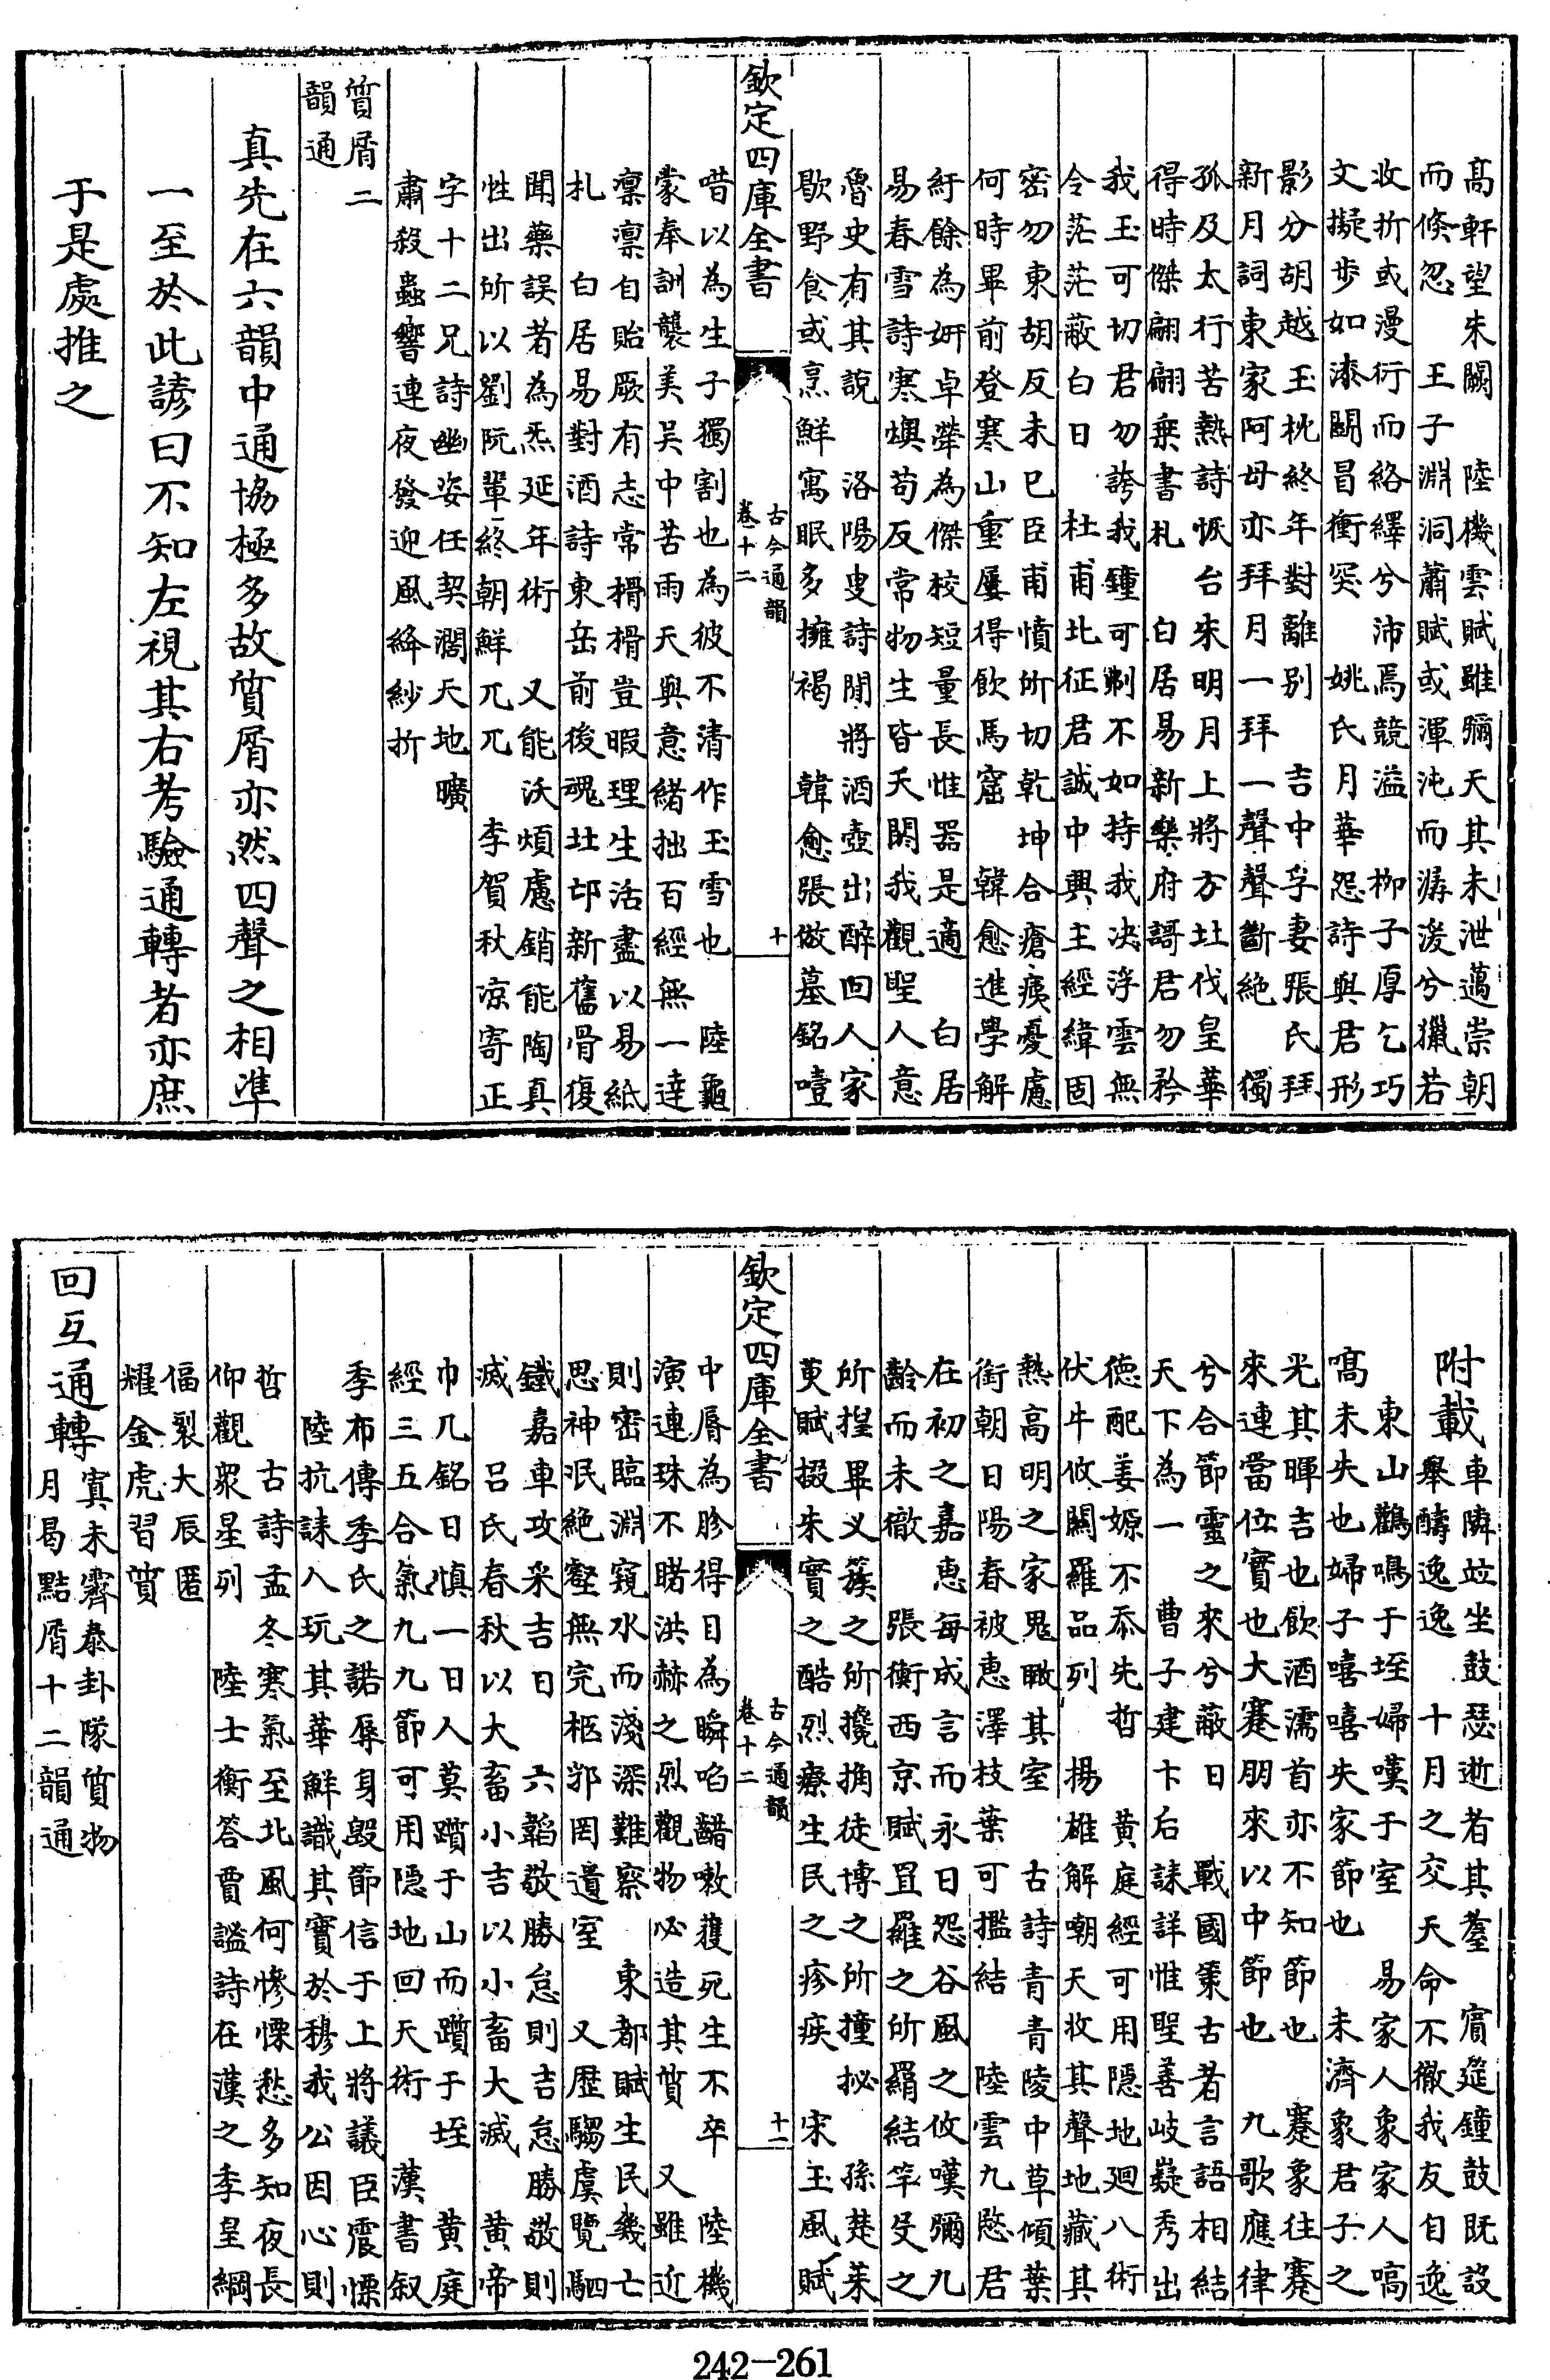 高軒望朱闕　陸機雲賦雖彌天其未泄邁崇朝
而倏忽　王子淵洞蕭賦或渾沌而潺湲兮獵若
收折或漫衍而絡繹兮沛焉競溢　柳子厚乞巧
文擬步如漆闢冒衝突　姚氏月華怨詩與君形
影分胡越玉枕終年對離別　吉中孚妻張氏拜
新月詞東家阿母亦拜月一拜一聲聲斷絕　獨
孤及太行苦熱詩恢台朱明月上將方圡伐皇華
得時傑翩翩乗書札　白居易新樂府謌君勿矜
我玉可切君勿誇我鐘可剃不如持我决浮雲無
令茫茫蔽白日　杜甫北征君誠中興主經緯固
密勿東胡反未已臣甫憤所切乾坤合瘡痍憂慮
何時畢前登寒山重屢得飲馬窟　韓愈進學解
紆餘為妍卓犖為傑校短量長惟器是適　白居
易春雪詩寒燠苟反常物生皆夭閼我觀聖人意
魯史有其說　洛陽叟詩閒將酒壺出醉回人家
歇野食或烹鮮寓眠多擁褐　韓愈張徹墓銘噎
欽定四庫全書
古今通韻
卷十二
十
喑以為生子獨割也為彼不清作玉雪也　陸龜
蒙奉訓襲美吳中苦雨天與意緒拙百經無一達
凛凛自貽厥有志常榾榾豈暇理生活盡以易紙
札　白居易對酒詩東岳前後魂北邙新舊骨復
聞藥誤者為炁延年術　又能沃煩慮銷能陶真
性出所以劉阮輩終朝鮮兀兀　李賀秋凉寄正
字十二兄詩幽姿任契濶天地曠
肅殺蟲響連夜發迎風絳紗折
質屑二
韻通
真先在六韻中通協極多故質屑亦然四聲之相準
一至於此諺曰不知左視其右考驗通轉者亦庶
于是處推之
附載車隣竝坐鼓瑟逝者其耋　賓筵鐘鼓既設
舉醻逸逸　十月之交天命不徹我友自逸
東山鸛鳴于垤婦嘆于室　易家人象家人嗃
嗃未失也婦子嘻嘻失家節也　未濟象君子之
光其暉吉也飲酒濡首亦不知節也　蹇象往蹇
來連當位實也大蹇朋來以中節也　九歌應律
兮合節靈之來兮蔽日　戰國策古者言語相結
天下為一　曹子建卞后誄詳惟聖善岐嶷秀出
德配姜嫄不忝先哲　黃庭經可用隱地廻八術
伏牛攸闕羅品列　揚雄解嘲天收其聲地藏其
熱高明之家鬼瞰其室　古詩青青陵中草傾葉
銜朝日陽春被惠澤枝葉可擥結　陸雲九愍君
在初之嘉惠每成言而永日怨谷風之攸嘆彌九
齡而未徹　張衡西京賦罝羅之所羂結竿殳之
所揘畢义蔟之所攙捔徒博之所撞㧙　孫楚茱
萸賦掇朱實之酷烈療生民之疹疾　宋玉風賦
欽定四庫全書
古今通韻
卷十二
十一
中脣為胗得目為瞬啗齰嗽獲死生不卒　陸機
演連珠不睹洪赫之烈觀物必造其質　又雖近
則密臨淵窺水而淺深難察　東都賦生民幾亡
思神泯絕壑無完柩郛罔遺室　又歷騶虞覽駟
鐵嘉車攻采吉日　六韜敬勝怠則吉怠勝敬則
滅　呂氏春秋以大畜小吉以小畜大滅　黃帝
巾几銘日慎一日人莫躓于山而躓于垤　黃庭
經三五合氣九九節可用隠地回天術　漢書叙
季布傳季氏之諾辱身毀節信于上將議臣震慄
陸抗誄人玩其華鮮識其實於穆我公因心則
哲　古詩孟冬寒氣至北風何慘慄愁多知夜長
仰觀眾星列　陸士衡答賈謐詩在漢之季皇綱
偪裂大辰匿
耀金虎習質
回互通轉寘未霽泰卦隊質物
月曷黠屑十二韻通
242-261